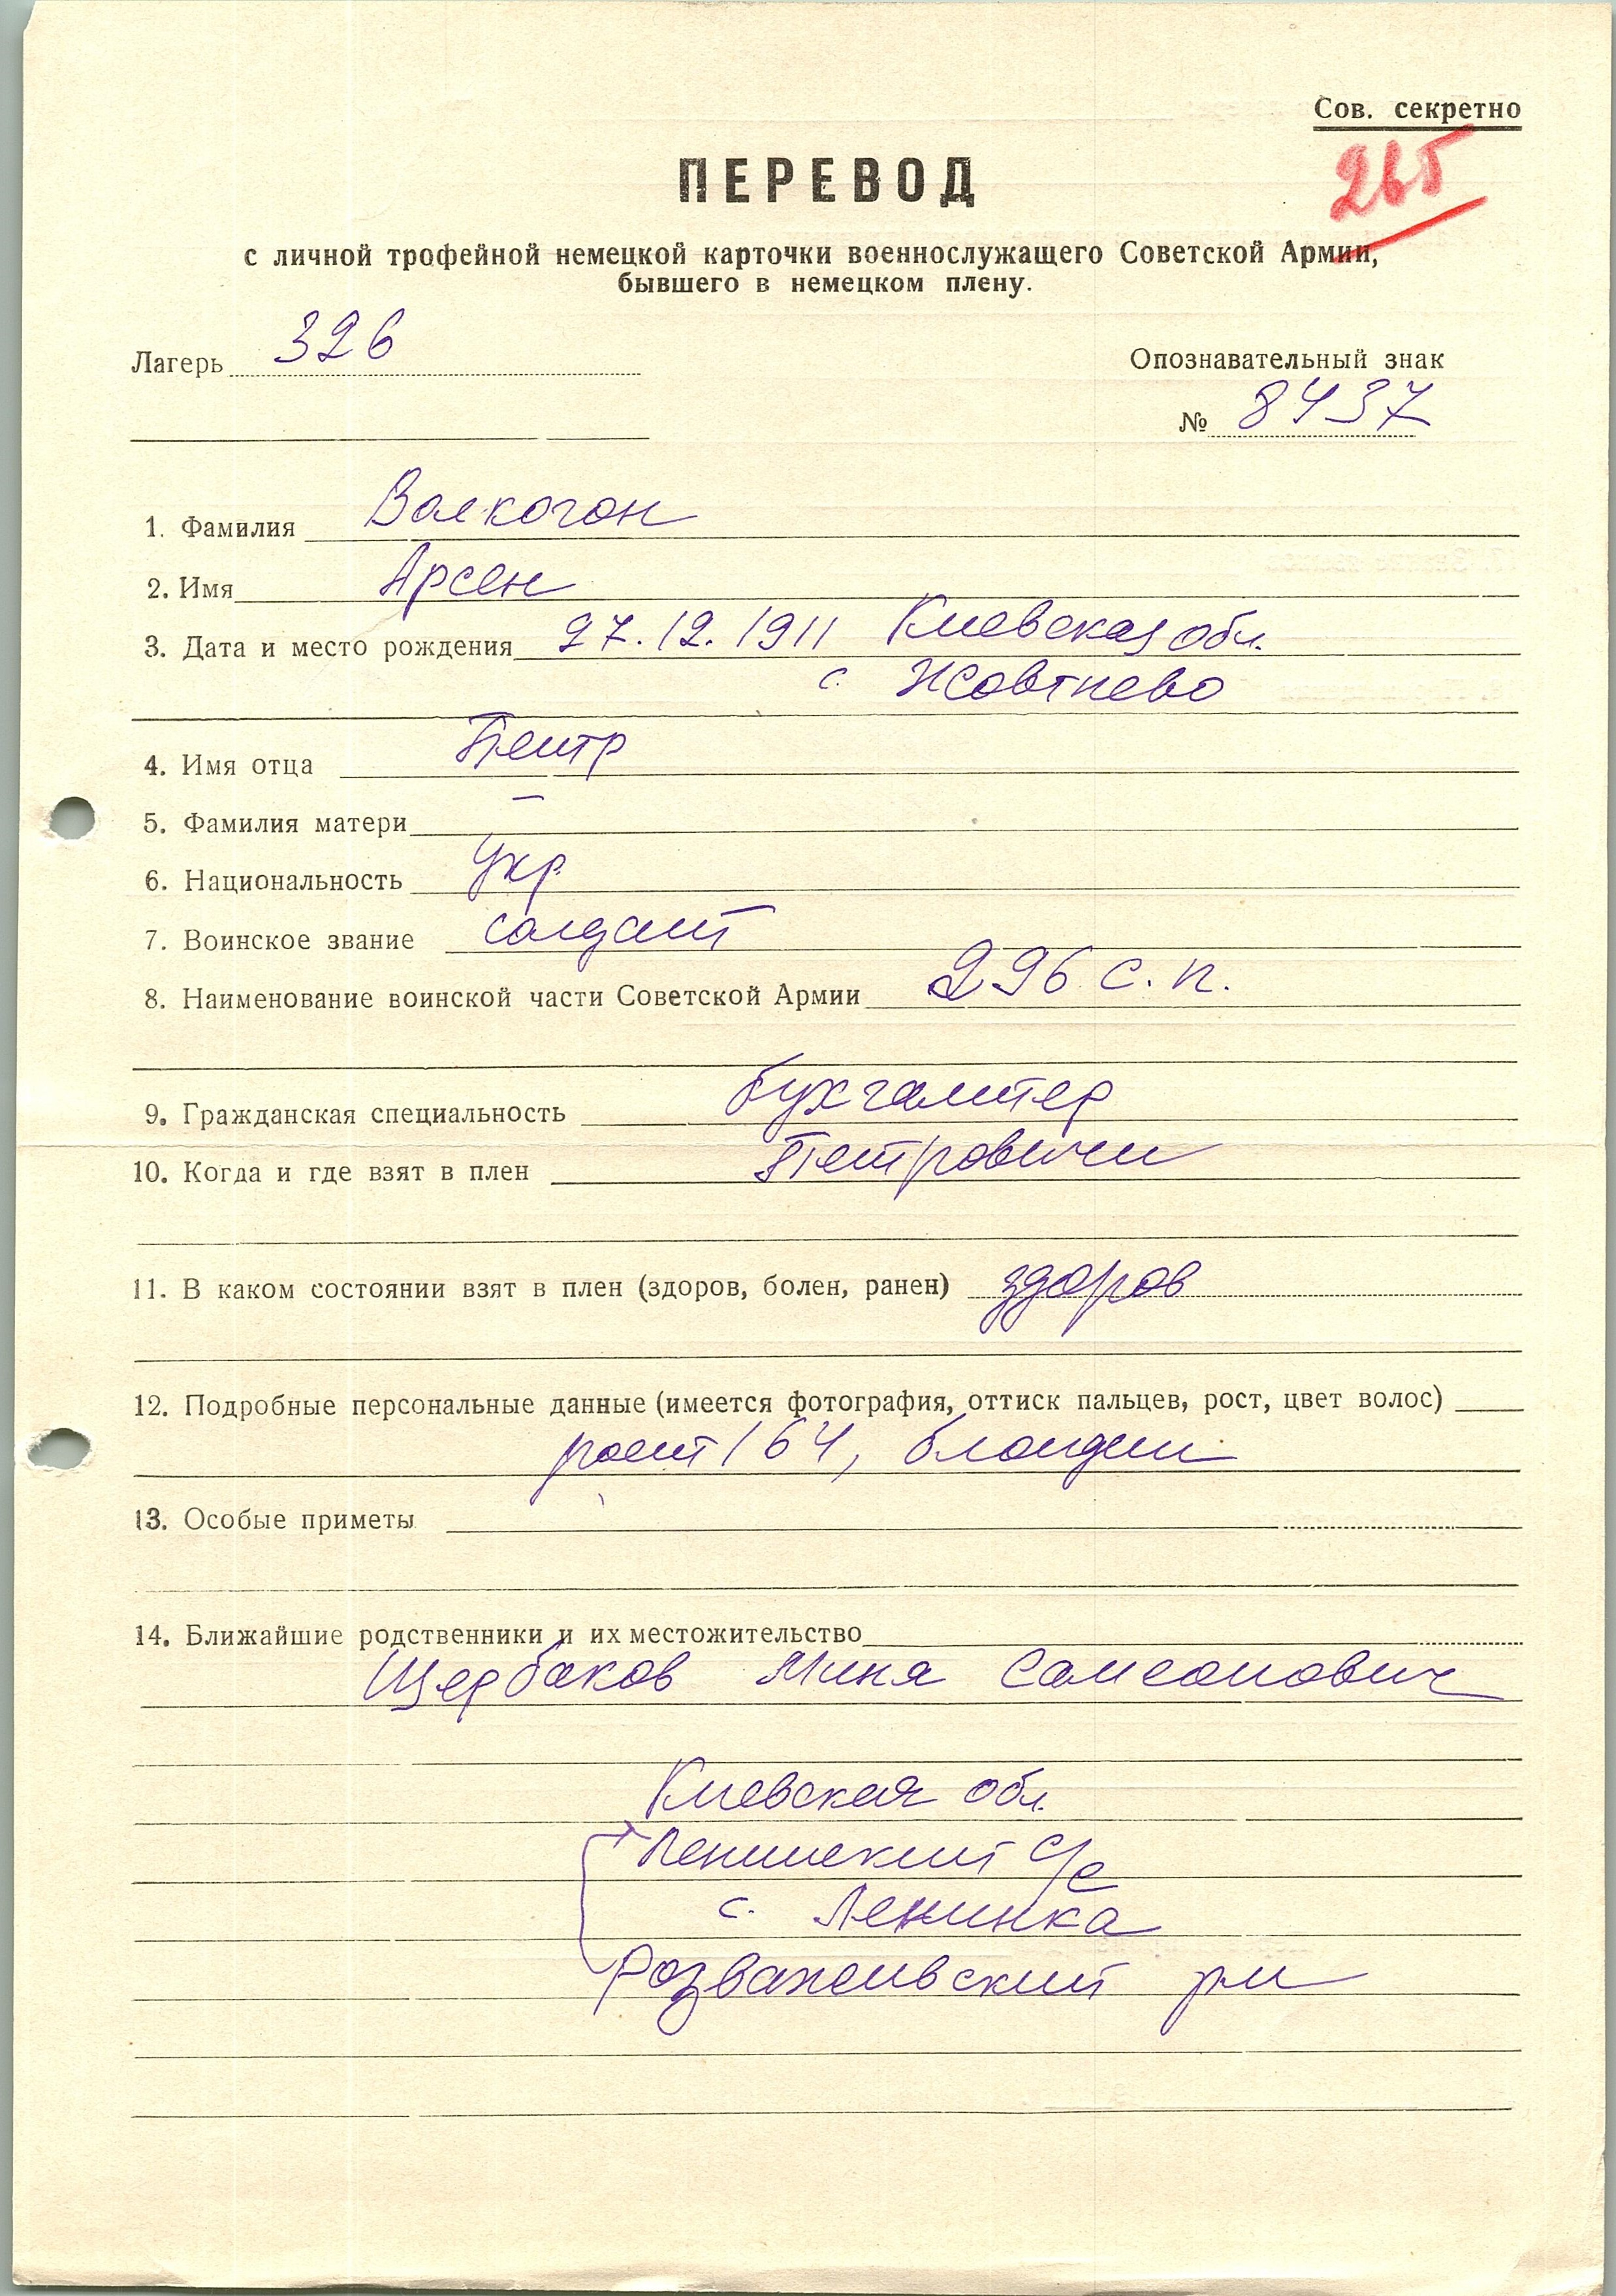 Сов. секретно
265
ПЕРЕВОД
с личной трофейной немецкой карточки военнослужащего Советской Армии,
бывшего в немецком плену.
Лагерь 326
Опознавательный знак
№ 8437
1. Фамилия Волкогон
2. Имя Арсен
3. Дата и место рождения 27.12.1911 Киевская обл.
с. Жовтнево
4. Имя отца Петр
5. Фамилия матери —
6. Национальность Укр.
7. Воинское звание солдат
8. Наименование воинской части Советской Армии 296 с.п.
9. Гражданская специальность бухгалтер
10. Когда и где взят в плен Петровичи
11. В каком состоянии взят в плен (здоров, болен, ранен) здоров
12. Подробные персональные данные (имеется фотография, оттиск пальцев, рост, цвет волос)
рост 164, блондин
13. Особые приметы
14. Ближайшие родственники и их местожительство
Щербаков Миня Самсонович
Киевская обл.
Ленинский с/с
с. Ленинка
Розважевский рн